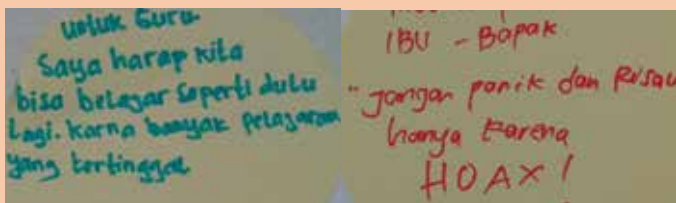 untuk Guru.
Saya harap kita
bisa belajar seperti dulu
Lagi. Karna banyak pelajaran
yang tertinggal
IBU - Bapak
"Jangan panik dan Risau
hanya karena
HOAX!